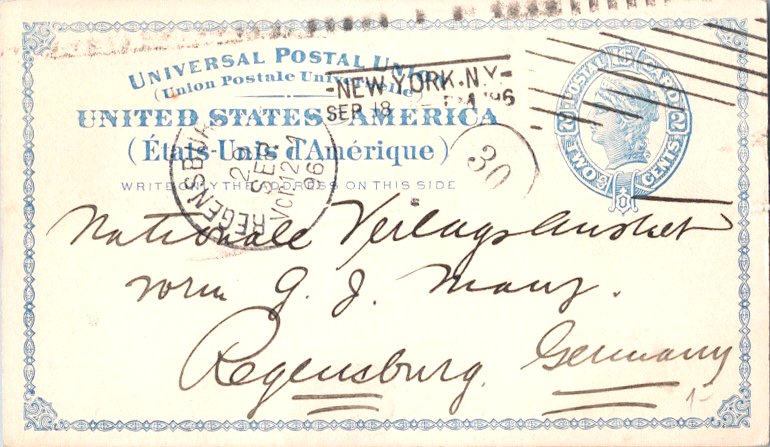 UNIVERSAL POSTAL UNION
(Union Postale Universelle)
NEW YORK. N.Y.
SEP 18
UNITED STATES AMERICA
(États-Unis d'Amérique)
WRITE ONLY THE ADDRESS ON THIS SIDE
POSTAL CARD
2 2
TWO CENTS
30
REGENSBURG
29
SEP
12
96
Nationale Verlagsanstalt
vorm G. J. Manz.
Regensburg. Germany